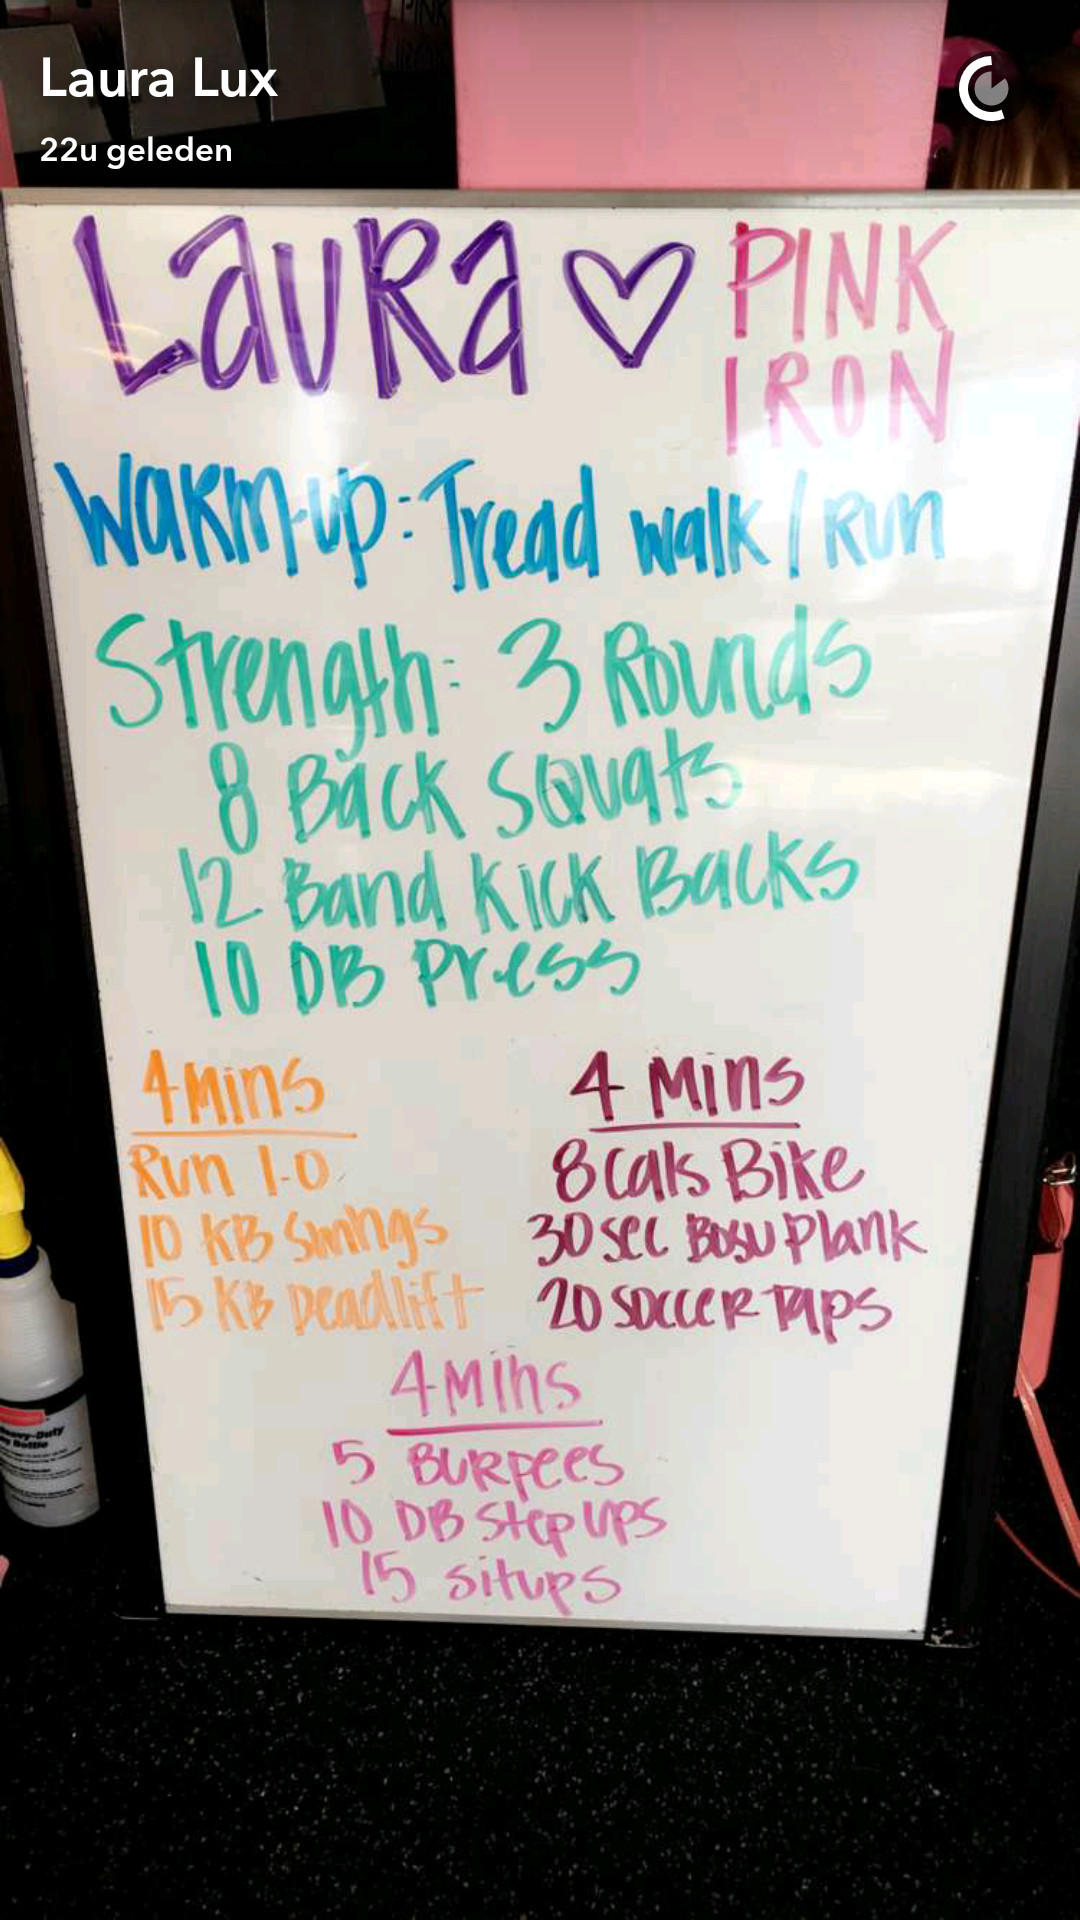 Laura Lux
22u geleden
LauRa ♡ PINK
IRON
Warm-up: Tread walk / Run
Strength: 3 Rounds
8 Back Squats
12 Band Kick Backs
10 DB Press
4 Mins
Run 1.0
10 KB Swings
15 KB Deadlift
4 Mins
8 Cals Bike
30 sec Bosu Plank
20 soccer Taps
4 Mins
5 Burpees
10 DB Step Ups
15 situps